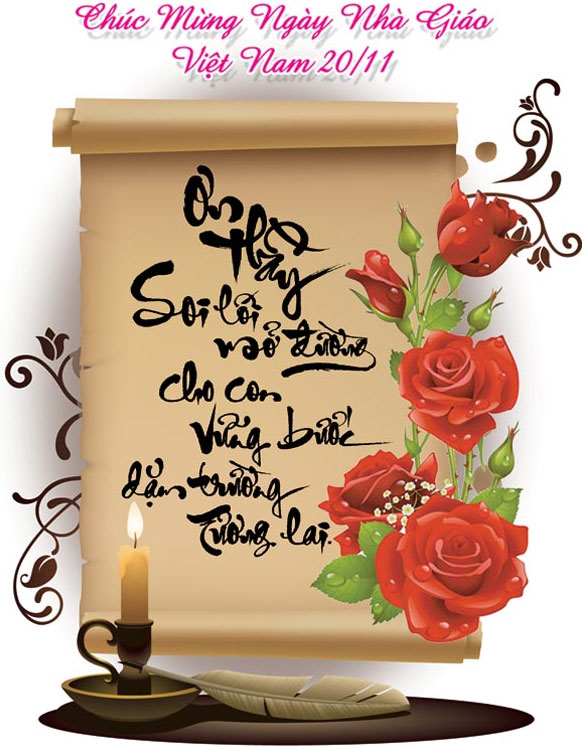 Chúc Mừng Ngày Nhà Giáo
Việt Nam 20/11
Ơn
thầy
Soi lối
mở đường
cho con
Vững bước
dặm trường
Tương lai.